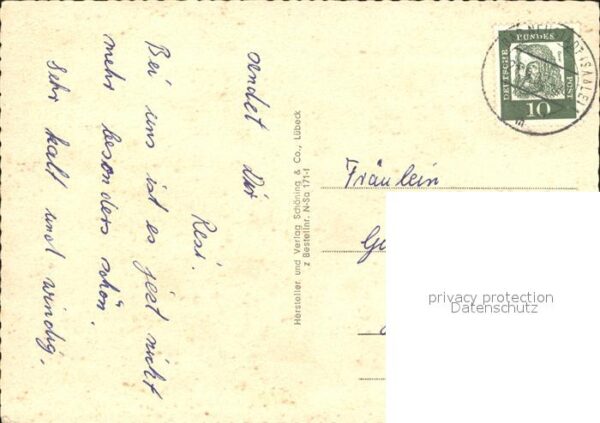 sendet Dir
Resi.
Bei uns ist es jest nicht
mehr besonders schön.
Sehr kalt und windig.
Hersteller und Verlag Schöning & Co., Lübeck
z Bestellnr. N-Sa 171-I
DEUTSCHE
BUNDES
POST
10
(SAALE)
Fräulein
privacy protection
Datenschutz